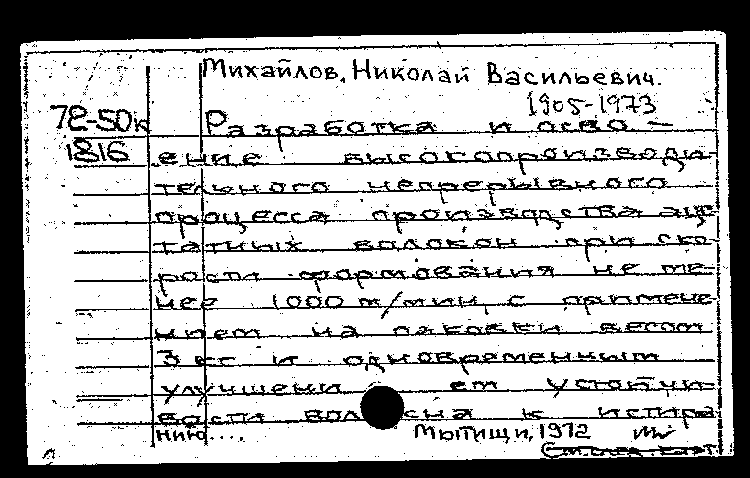 Михайлов, Николай Васильевич.
1905-1973
72-50к
1816
Разработка и осво-
ение высокопроизводи-
тельного непрерывного
процесса производства аце-
татных волокон при ско-
рости формования не ме-
нее 1000 м/мин, с примене-
нием на паковки весом
3 кг и одновременным
улучшени ем устойчи-
вости волокна к истира-
нию....
Мытищи, 1972
См. след. карт.